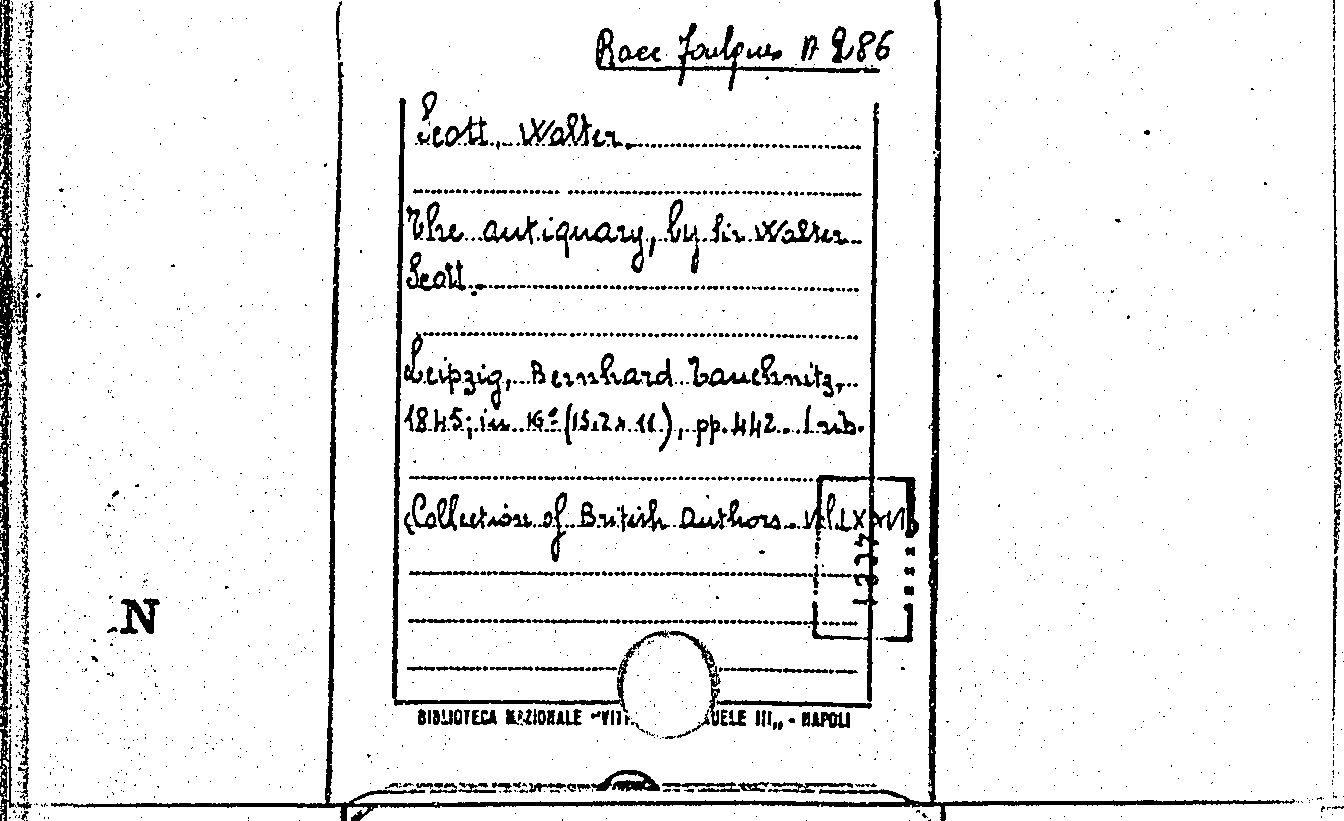 Racc Foulques A 286
Scott, Walter.
The antiquary, by Sir Walter
Scott.
Leipzig, Bernhard Tauchnitz,
1845; in 16° (15,2 x 11), pp. 442.
(Collection of British Authors.
BIBLIOTECA NAZIONALE "VITT UELE III„ - NAPOLI
N